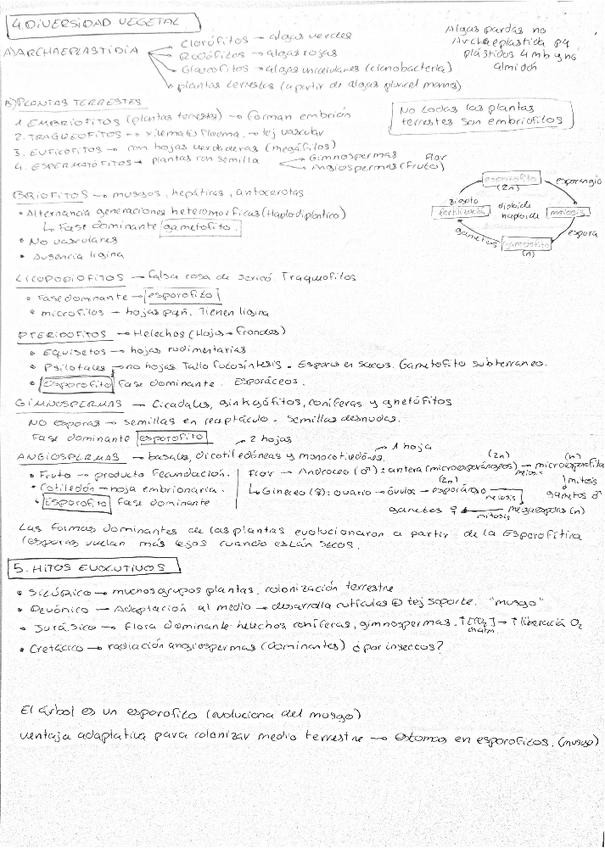 4. DIVERSIDAD VEGETAL
A) ARCHAEPLASTIDIA
Clorófitos → algas verdes
Rodófitos → algas rojas
Glaucofitos → algas unicelulares (cianobacteria)
plantas terrestres (a partir de algas pluricel monos)
Algas pardas no
Archaeplastida pq
plástidos 4 mb y no
almidón
B) PLANTAS TERRESTRES
1. EMBRIOFITOS (plantas terrestres) → forman embrión
2. TRAQUEOFITOS → xilema + floema → tej vascular
3. EUFICOFITOS → con hojas verdaderas (megáfilos)
4. ESPERMOFITOS → plantas con semilla
Gimnospermas Flor
Angiospermas (Fruto)
No todas las plantas
terrestres son embriofilos
esporofito
(2n)
esporangio
meiosis
espora
gametofito
(n)
gametos
fertilización
zigoto
diploide
haploide
BRIOFITOS → musgos, hepáticas, antocerotas
• Alternancia generaciones heteromorficas (Haplodiplóntico)
↳ Fase dominante gametofito.
• No vasculares
• Ausencia lignina
LICOPODIOFITOS → falsa rosa de Jericó. Traqueofitos
• Fase dominante → esporofito
• microfilos → hojas pqñ. Tienen lignina
PTERIDOFITOS → Helechos (Hojas → frondes)
• Equisetos → hojas rudimentarias
• Psilotales → no hojas. Tallo fotosíntesis. Esporas en sacos. Gametofito subterraneo.
• Esporofito fase dominante. Esporáceos.
GIMNOSPERMAS → Cicadales, ginkgófitos, coníferas y gnetófitos
NO esporas → semillas en receptáculo. Semillas desnudas.
Fase dominante esporofito
2 hojas
1 hoja
ANGIOSPERMAS → basales, dicotiledóneas y monocotiledóneas
• Fruto → producto fecundación.
• Cotiledón → hoja embrionaria.
• Esporofito fase dominante
Flor → Androceo (♂): antera (microesporángios) (2n) → meiosis microesporofita (n)
↓ mitosis
gametos ♂
↳ Gineceo (♀): ovario → óvulos → esporángio (2n) meiosis
gametos ♀ ← mitosis megasporas (n)
Las formas dominantes de las plantas evolucionaron a partir de la Esporofitica
(esporas vuelan más lejos cuando están secos.
5. HITOS EVOLUTIVOS
• Silúrico → muchos grupos plantas, colonización terrestre
• Devónico → Adaptación al medio → desarrolla cutículas ⊕ tej soporte. "musgo"
• Jurásico → Flora dominante helechos coníferas, gimnospermas. ↑[CO₂] → ↑ liberación O₂
• Cretácico → radiación angiospermas (dominantes) ¿por insectos?
El árbol es un esporofito (evoluciona del musgo)
ventaja adaptativa para colonizar medio terrestre → estomas en esporofitos. (musgo)